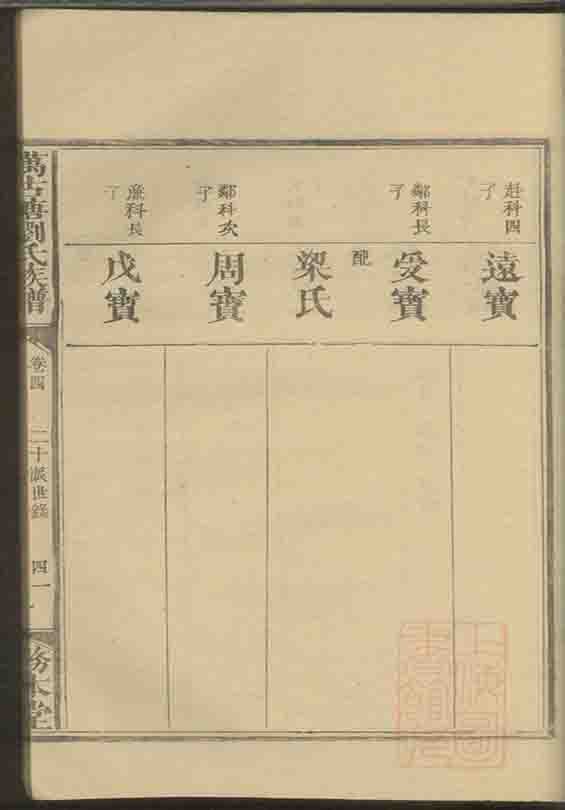 赶科四子
遠寶
鄰科長子
爰寶
配
梁氏
鄰科次子
周寶
廉科長子
戊寶
萬古塘劉氏族譜
卷四
二十派世錄
四一
務本堂